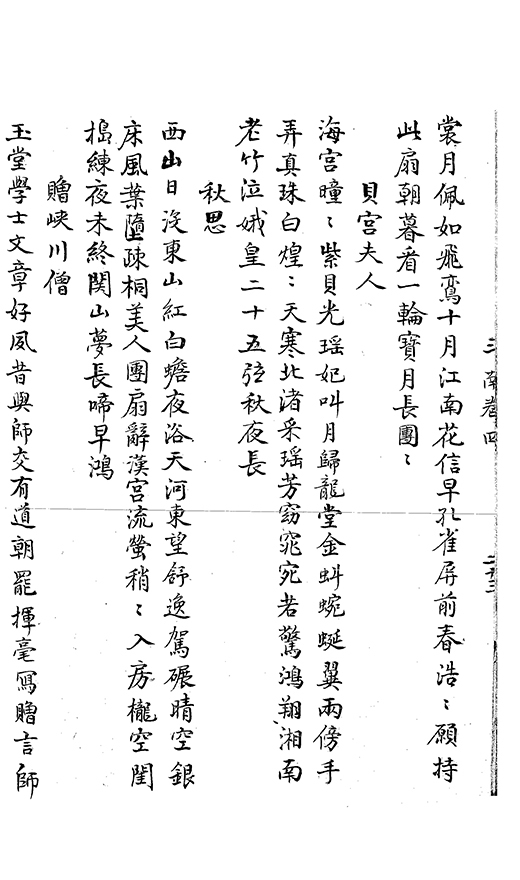 裳月佩如飛鸞十月江南花信早孔雀屏前春浩〻願持
此扇朝暮看一輪寶月長團〻
貝宮夫人
海宮曈〻紫貝光瑶妃叫月歸龍堂金蚪蜿蜒翼兩傍手
弄真珠白煌〻天寒北渚采瑶芳窈窕宛若驚鴻翔湘南
老竹泣娥皇二十五弦秋夜長
秋思
西山日沒東山紅白蟾夜浴天河東望舒逸駕碾晴空銀
床風葉墮疎桐美人團扇辭漢宮流螢稍〻入房櫳空閨
搗練夜未終関山夢長啼早鴻
贈峽川僧
玉堂學士文章好夙昔與師交有道朝罷揮毫寫贈言師